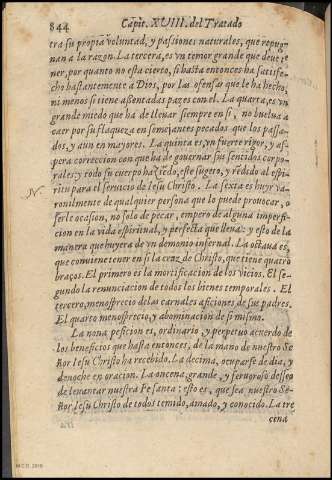 844 Capit. XVIII. del Tratado
tra su propia voluntad, y passiones naturales, que repug
nan a la razon. La tercera, es vn temor grande que deue te
ner, por quanto no esta cierto, si hasta entonces ha satisfe-
cho bastantemente a Dios, por las ofensas que le ha hecho,
ni menos si tiene assentadas pazes con el. La quarta, es vn
grande miedo que ha de lleuar siempre en si, no buelua a
caer por su flaqueza en semejantes pecados que los passa-
dos, y aun en mayores. La quinta es, vn fuerte rigor, y as-
pera correccion con que ha de gouernar sus sentidos corpo-
rales: y todo su cuerpo este sugeto, y rēdido al espi
N. ritu para el seruicio de Iesu Christo. La sexta es huyr va-
ronilmente de qualquier persona que lo puede prouocar, o
serle ocasion, no solo de pecar, empero de alguna imperfi-
cion en la vida espiritual, y perfecta que lleua: y esto de la
manera que huyera de vn demonio infernal. La octaua es,
que conuiene tener en si la cruz de Christo, que tiene quatro
braços. El primero es la mortificacion de los vicios. El se-
gundo la renunciacion de todos los bienes temporales. El
tercero, menosprecio de las carnales aficiones de sus padres.
El quarto menosprecio, y abominacion de si mismo.
La nona peticion es, ordinario, y perpetuo acuerdo de
los beneficios que hasta entonces, de la mano de nuestro Se
ñor Iesu Christo ha recebido. La decima, ocuparse de dia, y
de noche en oracion. La oncena, grande, y feruoroso desseo
de leuantar nuestra Fe santa: esto es, que sea nuestro Se-
ñor Iesu Christo de todos temido, amado, y conocido. La tre
cena
M.C.D. 2018